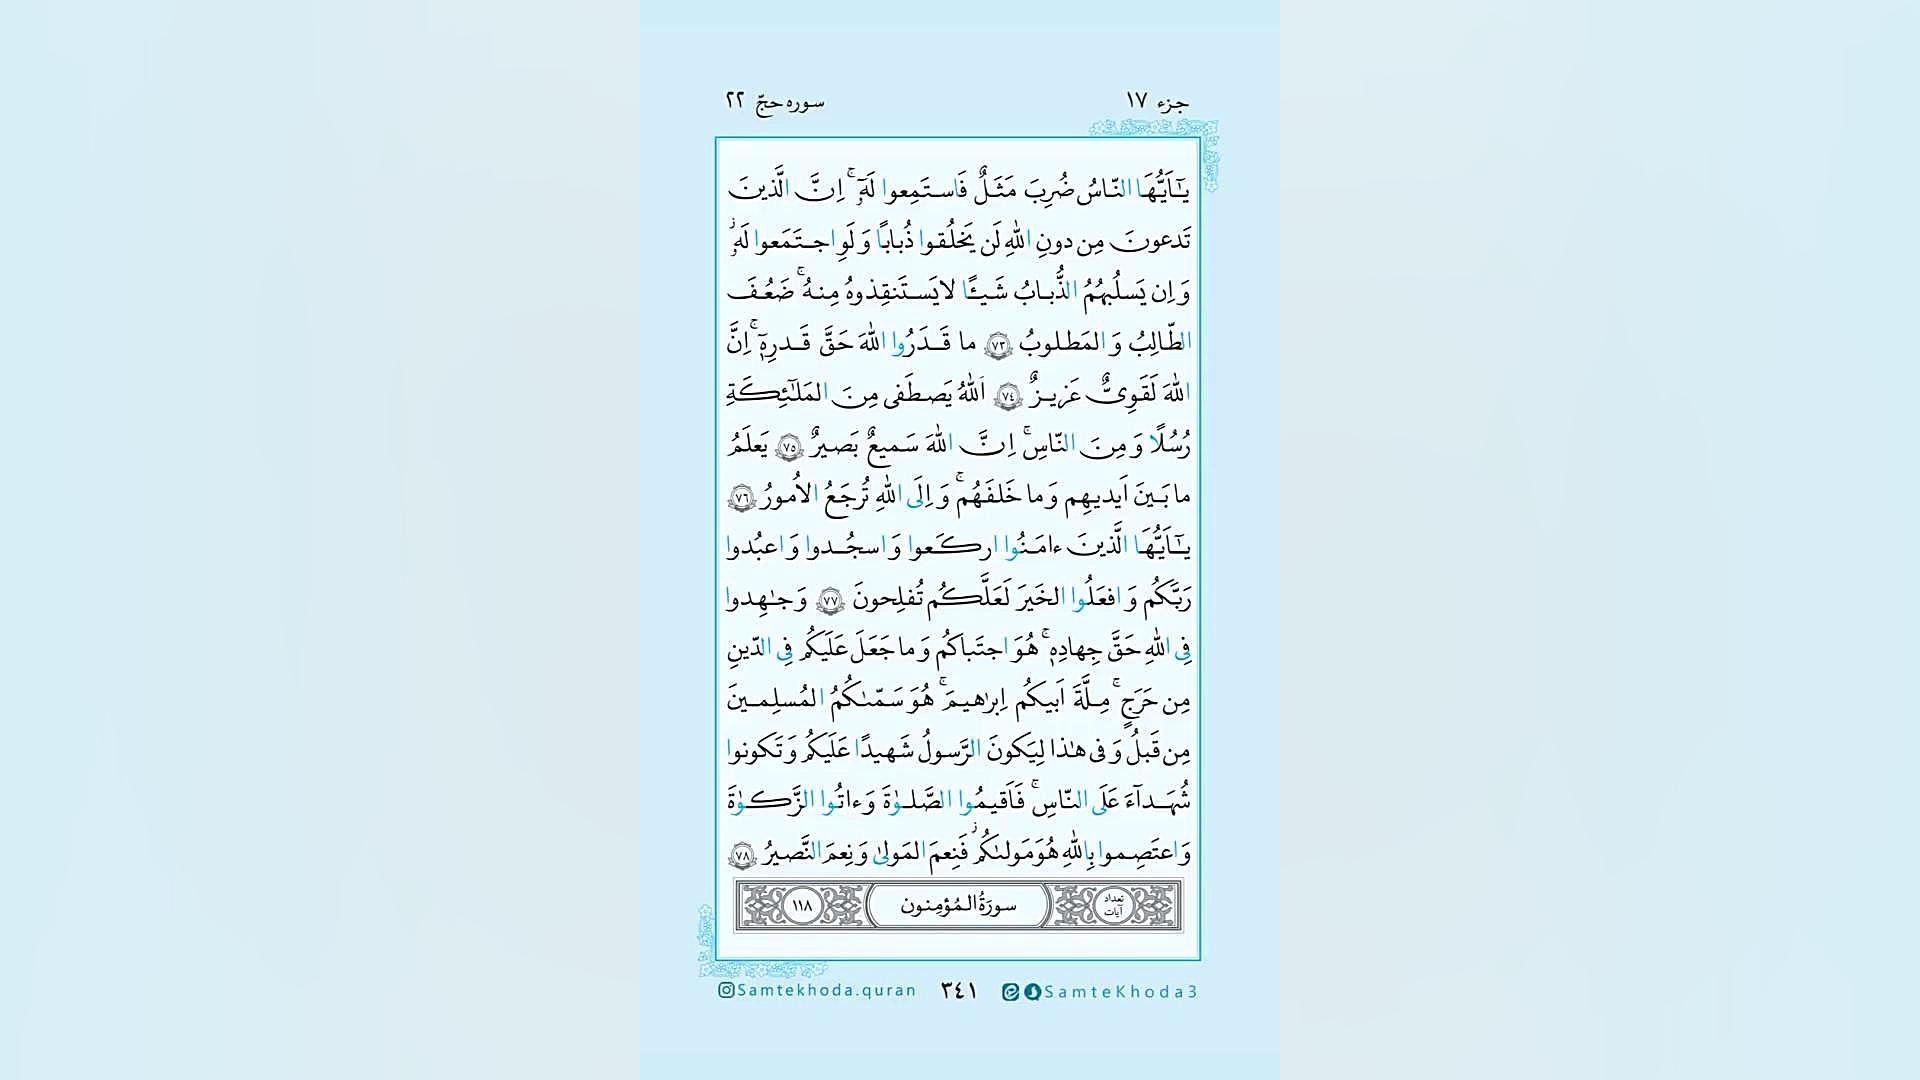 جزء ۱۷
سوره حجّ ۲۲
يـٰٓاَيُّهَا النّاسُ ضُرِبَ مَثَلٌ فَاستَمِعوا لَهٗٓ ۚ اِنَّ الَّذينَ
تَدعونَ مِن دونِ اللّٰهِ لَن يَخلُقوا ذُبابًا وَ لَوِ اجتَمَعوا لَهٗ ۖ
وَ اِن يَسلُبهُمُ الذُّبابُ شَيـًٔا لايَستَنقِذوهُ مِنهُ ۚ ضَعُفَ
الطّالِبُ وَ المَطلوبُ ﴿٧٣﴾ ما قَدَرُوا اللّٰهَ حَقَّ قَدرِهٖٓ ۚ اِنَّ
اللّٰهَ لَقَوِىٌّ عَزيزٌ ﴿٧٤﴾ اَللّٰهُ يَصطَفى مِنَ المَلـٰٓئِكَةِ
رُسُلًا وَ مِنَ النّاسِ ۚ اِنَّ اللّٰهَ سَميعٌ بَصيرٌ ﴿٧٥﴾ يَعلَمُ
ما بَينَ اَيديهِم وَ ما خَلفَهُم ۚ وَ اِلَى اللّٰهِ تُرجَعُ الاُمورُ ﴿٧٦﴾
يـٰٓاَيُّهَا الَّذينَ ءامَنُوا اركَعوا وَ اسجُدوا وَ اعبُدوا
رَبَّكُم وَ افعَلُوا الخَيرَ لَعَلَّكُم تُفلِحونَ ﴿٧٧﴾ وَ جـٰهِدوا
فِى اللّٰهِ حَقَّ جِهادِهٖ ۚ هُوَ اجتَباكُم وَ ما جَعَلَ عَلَيكُم فِى الدّينِ
مِن حَرَجٍ ۚ مِلَّةَ اَبيكُم اِبرٰهيمَ ۚ هُوَ سَمّىٰكُمُ المُسلِمينَ
مِن قَبلُ وَ فى هـٰذا لِيَكونَ الرَّسولُ شَهيدًا عَلَيكُم وَ تَكونوا
شُهَدآءَ عَلَى النّاسِ ۚ فَاَقيمُوا الصَّلوٰةَ وَ ءاتُوا الزَّكوٰةَ
وَ اعتَصِموا بِاللّٰهِ هُوَ مَولىٰكُم ۖ فَنِعمَ المَولىٰ وَ نِعمَ النَّصيرُ ﴿٧٨﴾
تعداد آيات
سورَةُ المُؤمِنون
١١٨
Samtekhoda.quran
٣٤١
SamteKhoda3